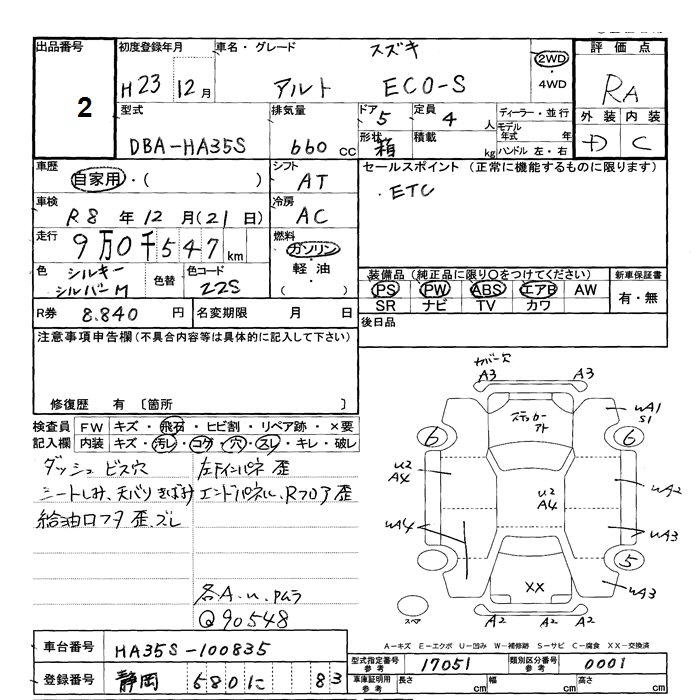 出品番号
2
初度登録年月
H23 12月
車名・グレード
スズキ
アルト ECO-S
2WD
・
4WD
評価点
RA
外装 内装
D C
型式
DBA-HA35S
排気量
660 cc
ドア
5
形状
箱
定員
4 人
積載
kg
ディーラー・並行
モデル
年式 年
ハンドル 左・右
車歴
自家用・( )
シフト
AT
セールスポイント (正常に機能するものに限ります)
・ETC
車検
R8 年 12 月(21 日)
冷房
AC
走行
9万0千547 km
燃料
ガソリン
・
軽油
・
( )
色
シルキー
シルバーM
色替
色コード
Z2S
装備品 (純正品に限り○をつけてください)
PS PW ABS エアB AW
SR ナビ TV カワ
新車保証書
有・無
R券 8.840 円
名変期限 月 日
後日品
注意事項申告欄(不具合内容等は具体的に記入して下さい)
修復歴 有 〔箇所 〕
検査員
記入欄
FW キズ・飛石・ヒビ割・リペア跡・×要
内装 キズ・汚レ・コゲ・穴・スレ・キレ・破レ
ダッシュ ビス穴
シートしみ、天バリきばみ
給油口フタ 歪.ズレ
左下インパネ 歪
エンドパネル、Rフロア歪
各A.u.PAラ
Q90548
カバー欠
A3 A3
ステッカー
アト
wA1
S1
6 6
u2
A4
u2
A4
wA2
wA4
wA3
5
XX
wA3
スペア
A2 A2 A2
A-キズ E-エクボ U-凹み W-補修跡 S-サビ C-腐食 XX-交換済
車台番号 HA35S-100835
登録番号 静岡 580 に 83
型式指定番号
参考
17051
類別区分番号
参考
0001
車庫証明用
参考
長さ cm 幅 cm 高さ cm